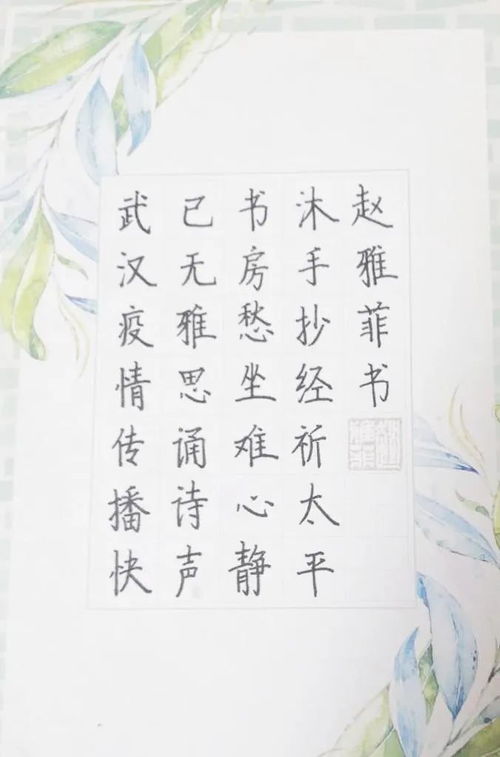 武汉疫情传播快
已无雅思诵诗声
书房愁坐难心静
沐手抄经祈太平
赵雅菲书